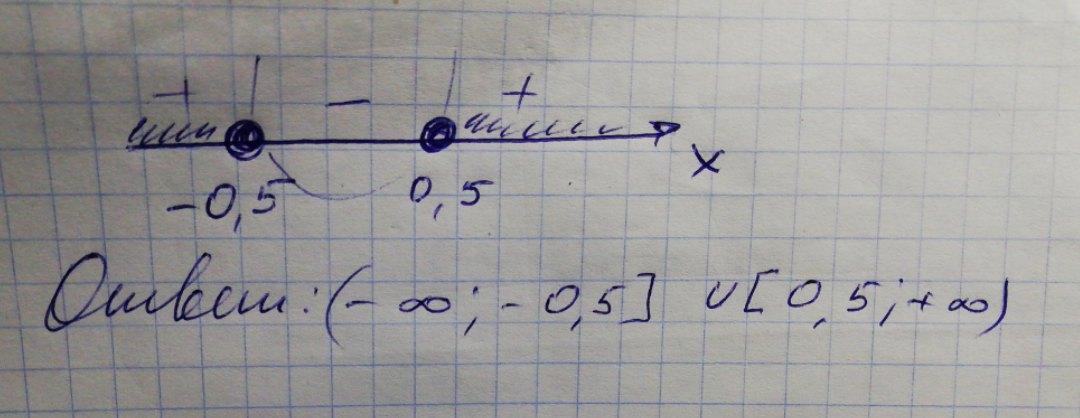 + − +
-0,5 0,5 x
Ответ: (-∞; -0,5] ∪ [0,5; +∞)